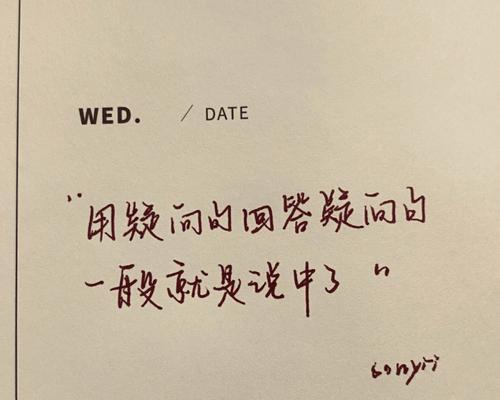 WED. / DATE
“用疑问的回答疑问的
一般就是说中了”